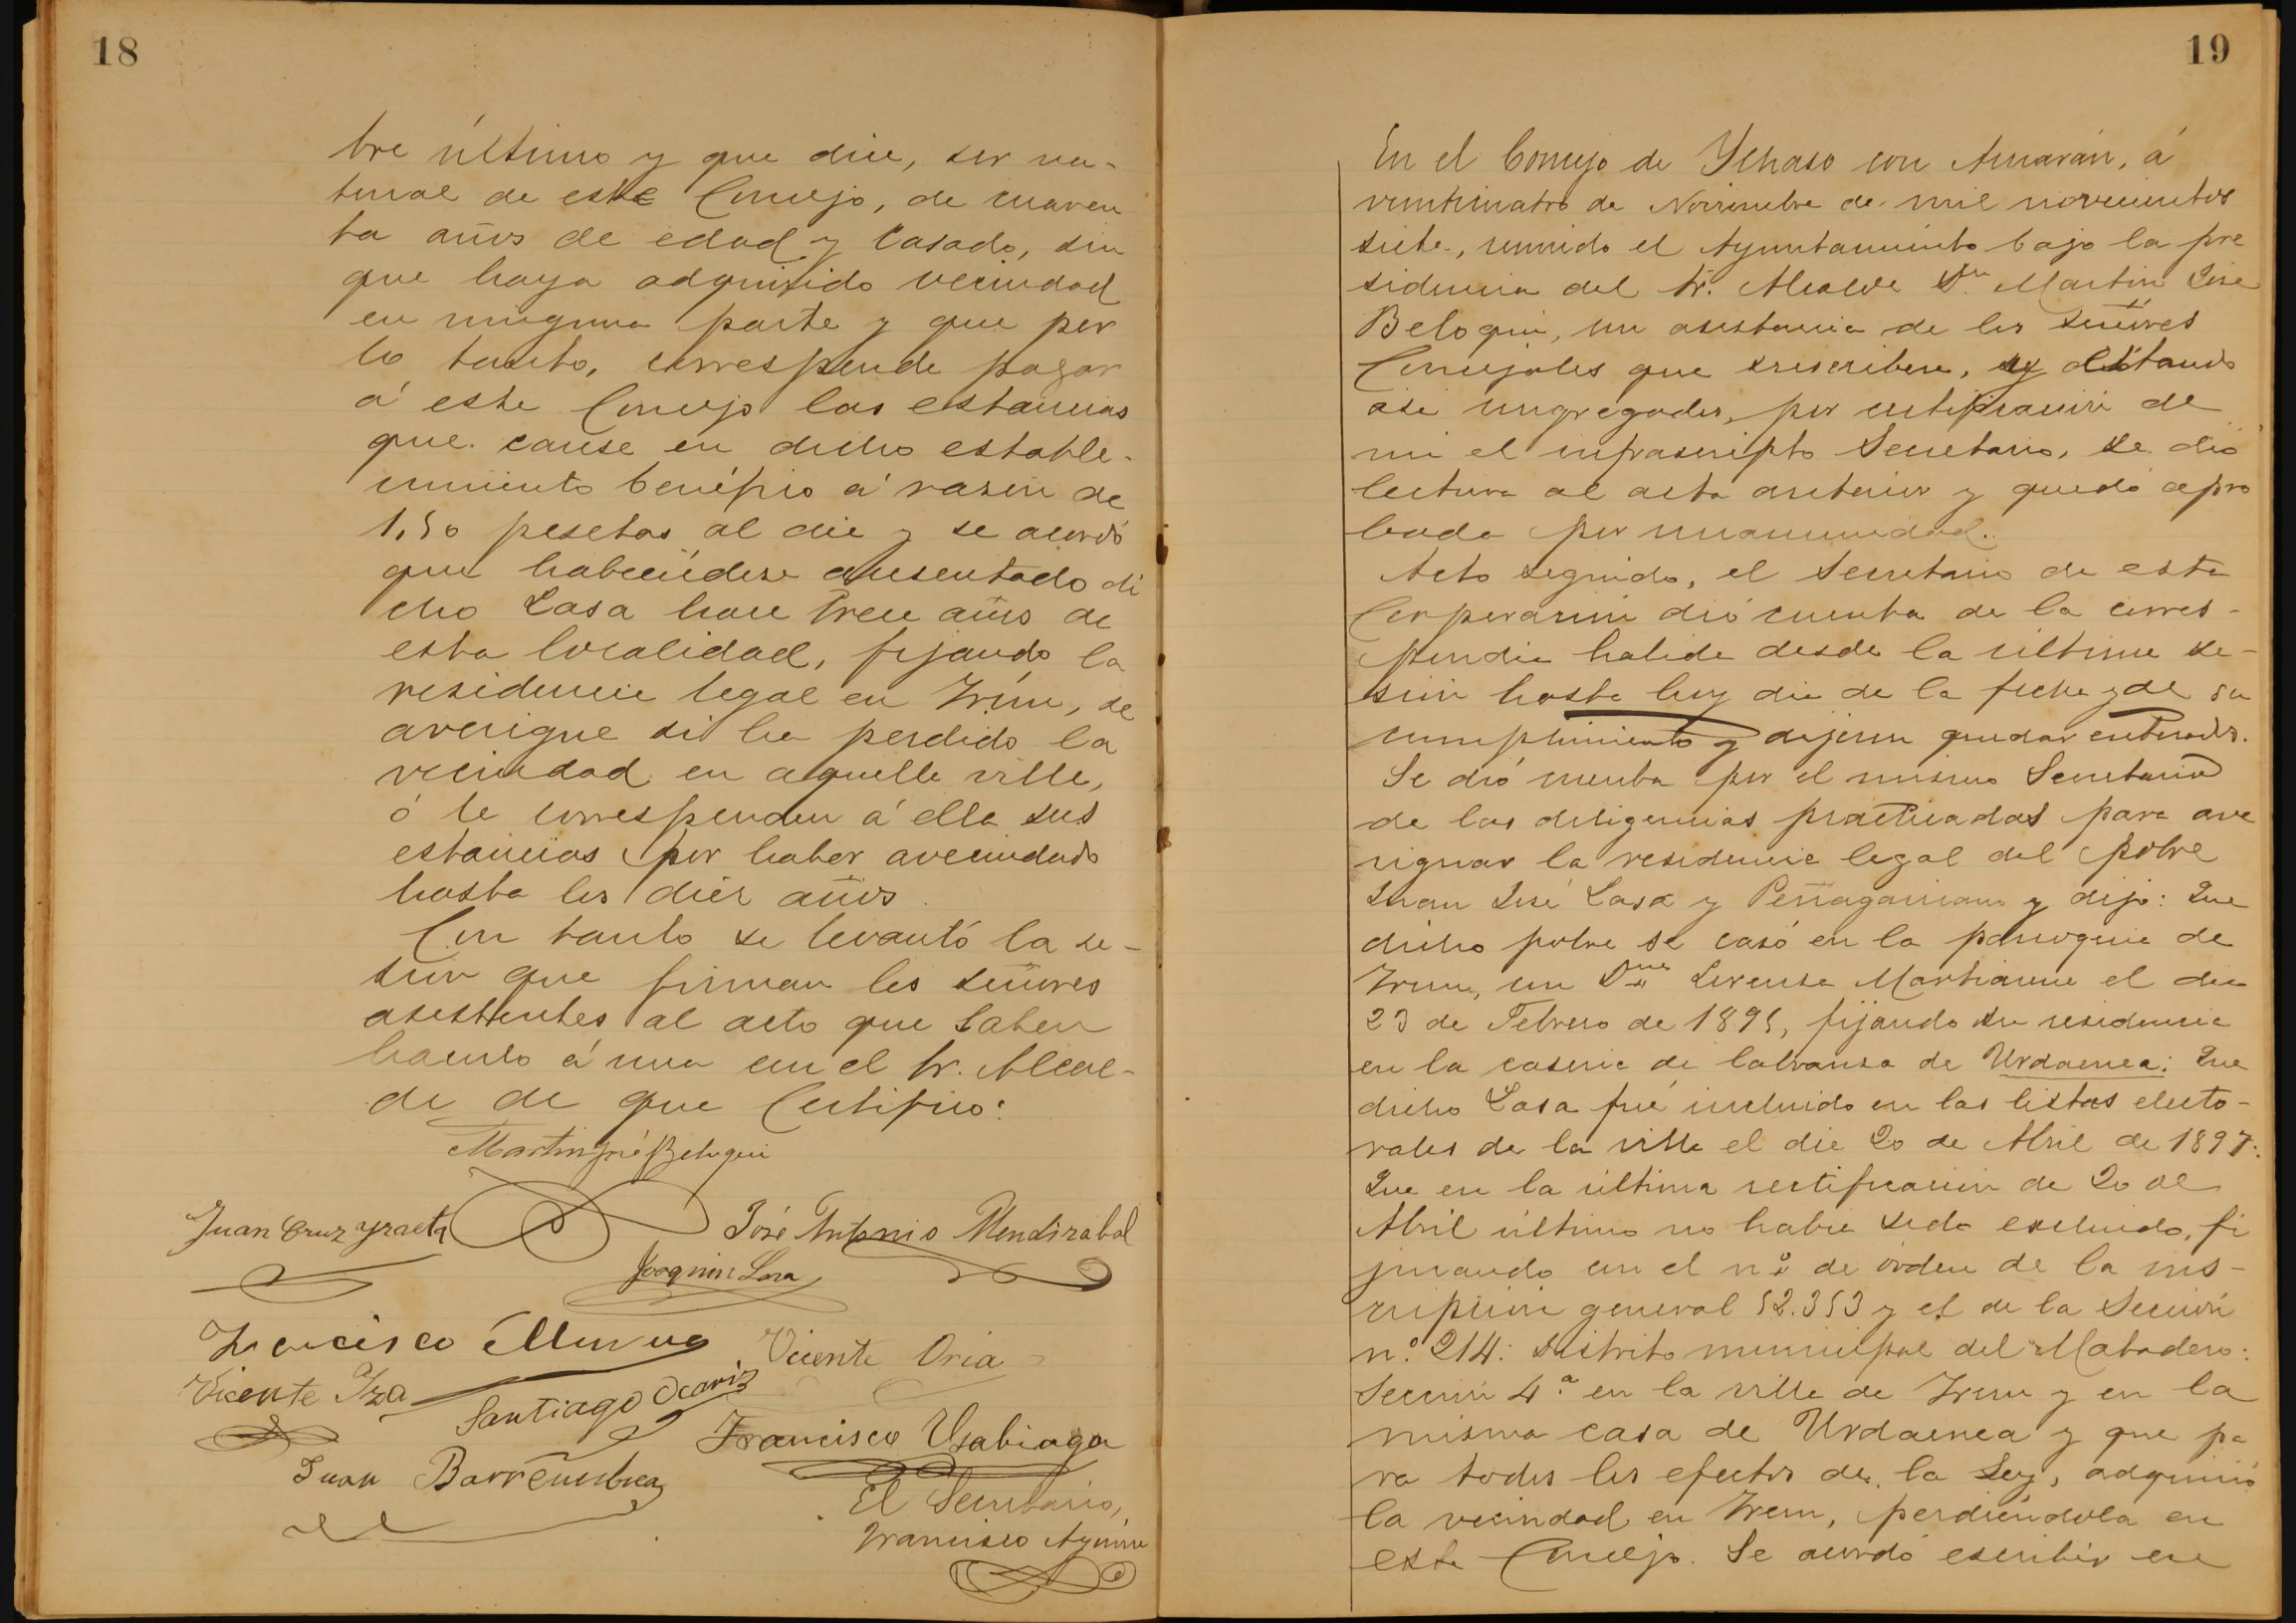 18
bre último y que dice, ser na-
tural de este Concejo, de cuaren
ta años de edad y casado, sin
que haya adquirido vecindad
en ninguna parte y que por
lo tanto, corresponde pagar
á este Concejo las estancias
que cause en dicho estable-
cimiento benéfico á razon de
1,50 pesetas al dia y se acordó
que habiéndose ausentado di
cho Lasa hace trece años de
esta localidad, fijando la
residencia legal en Irún, se
averigue si ha perdido la
vecindad en aquella villa,
ó le corresponden á ella sus
estancias por haber avecindado
hasta los diez años.
Con tanto se levantó la se-
sion que firman los señores
asistentes al acto que saben
hacerlo á una con el Sr. Alcal-
de de que Certifico:
Martin José Beloqui
Juan Cruz Yraeta
José Antonio Mendizabal
Joaquin Lasa
Francisco
Vicente Oria
Vicente Yza
Santiago Ocariz
Francisco Usabiaga
Juan Barrenechea
El Secretario,
Francisco Aguirre
19
En el Concejo de Ychaso con Arriarán, á
veinticuatro de Noviembre de mil novecientos
siete, reunido el Ayuntamiento bajo la pre
sidencia del Sr. Alcalde Dn. Martin José
Beloqui, con asistencia de los señores
Concejales que suscriben, y estando
asi congregados, por certificación de
mi el infrascripto Secretario, se dió
lectura al acta anterior y quedó apro
bada por unanimidad.
Acto seguido, el Secretario de esta
Corporación dió cuenta de la corres-
pondia habida desde la última se-
sión hasta hoy dia de la fecha y de su
cumplimiento y dijeron quedar enterados.
Se dió cuenta por el mismo Secretario
de las diligencias practicadas para ave
riguar la residencia legal del pobre
Juan José Lasa y Peñagaricano y dijo: Que
dicho pobre se casó en la parroquia de
Irun, con Dña Lorenza Martiarena el dia
23 de Febrero de 1895, fijando su residencia
en la caseria de labranza de Urdaenea: Que
dicho Lasa fué incluido en las listas electo-
rales de la villa el dia 20 de Abril de 1897:
Que en la última rectificación de 20 de
Abril último no habia sido excluido, fi
gurando con el nº de órden de la ins-
cripción general 52.353 y el de la Sección
nº 214: distrito municipal del Matadero:
Sección 4.ª en la villa de Irun y en la
misma casa de Urdaenea y que pa
ra todos los efectos de la Ley, adquirió
la vecindad en Irun, perdiéndola en
este Concejo. Se acordó escribir en